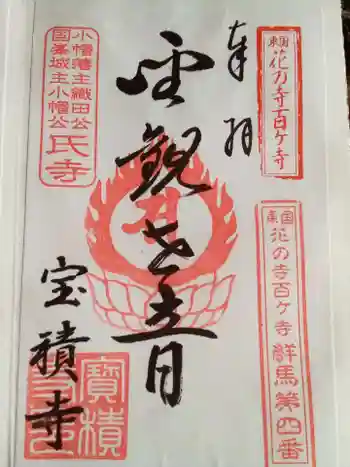 東国花の寺百ケ寺
東国花の寺百ケ寺 群馬第四番
奉拝
聖観世音
小幡藩主織田公
国峯城主小幡公
氏寺
宝積寺
寶積寺印